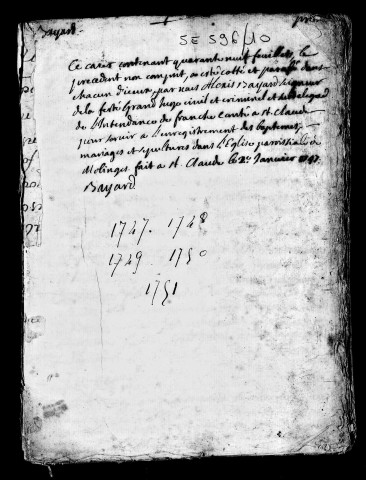 Bayard
5E 596/10
Ce caier contenant quarante neuf feuillets, le
precedent non comprit, a esté cotté et paraffé dans
chacun d'iceux par nous Alexis Bayard seigneur
de la ferté Grand Juge civil et criminel et subdelegué
de l'Intendance de franche Comté a St Claude
pour servir a l'enregistrement des baptemes,
mariages et sepultures dans l'Eglise parroissiale de
Molinges fait a St. Claude le 2e Janvier 1747.
Bayard
1747. 1748
1749. 1750
1751